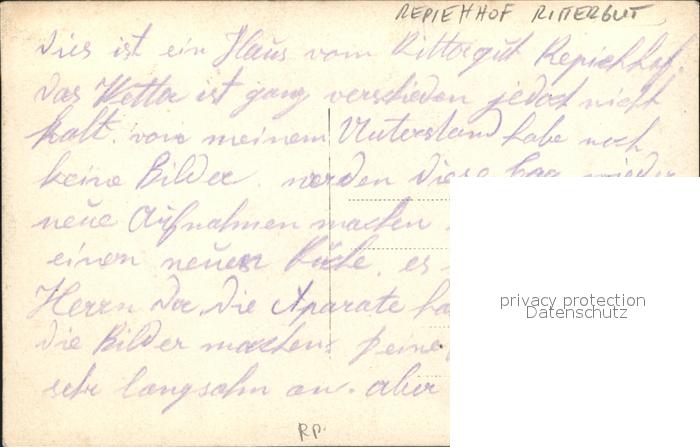 REPIEHHOF RITTERGUT
Dies ist ein Haus vom Rittergut Repiehhof.
Das Wetter ist ganz verschieden jedoch nicht
kalt. von meinem Unterstand habe noch
keine Bilder. werden diese Tage wieder
neue Aufnahmen machen
einen neuen
Herrn da, die Aparate
die Bilder machen.
sehr langsahm an. aber
RP.
privacy protection
Datenschutz